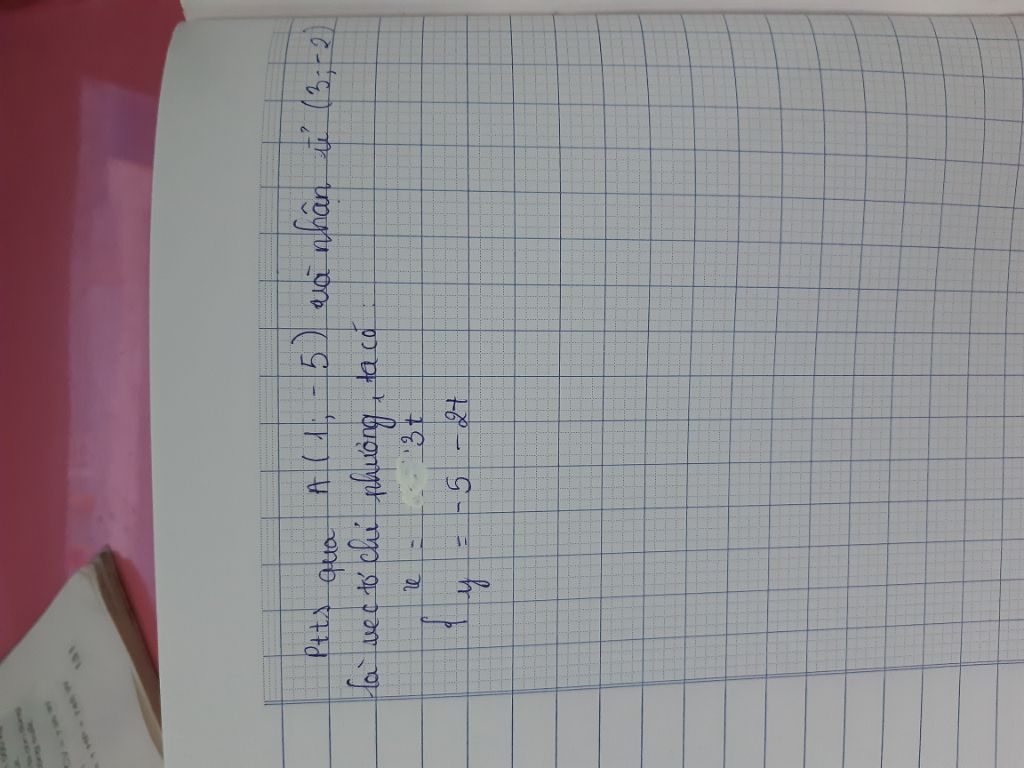 Ptts qua A (1; -5) và nhận u⃗ (3; -2)
là vectơ chỉ phương, ta có:
x = 3t
{ y = -5 - 2t